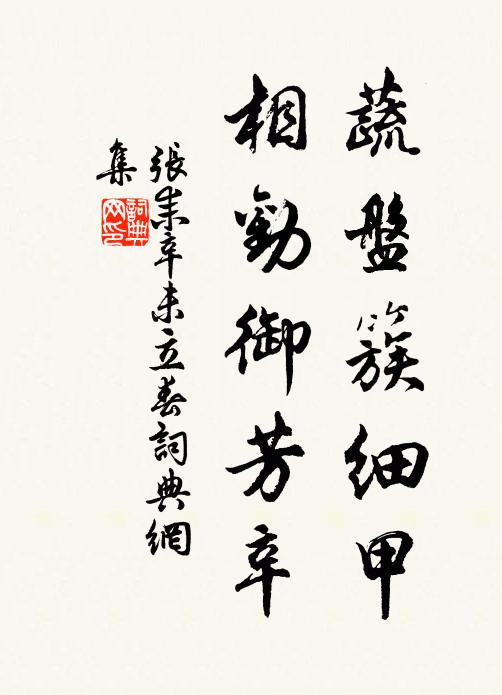 蔬盤簇細甲
相勸御芳辛
張耒辛未立春詞典網
集
詞典
网印